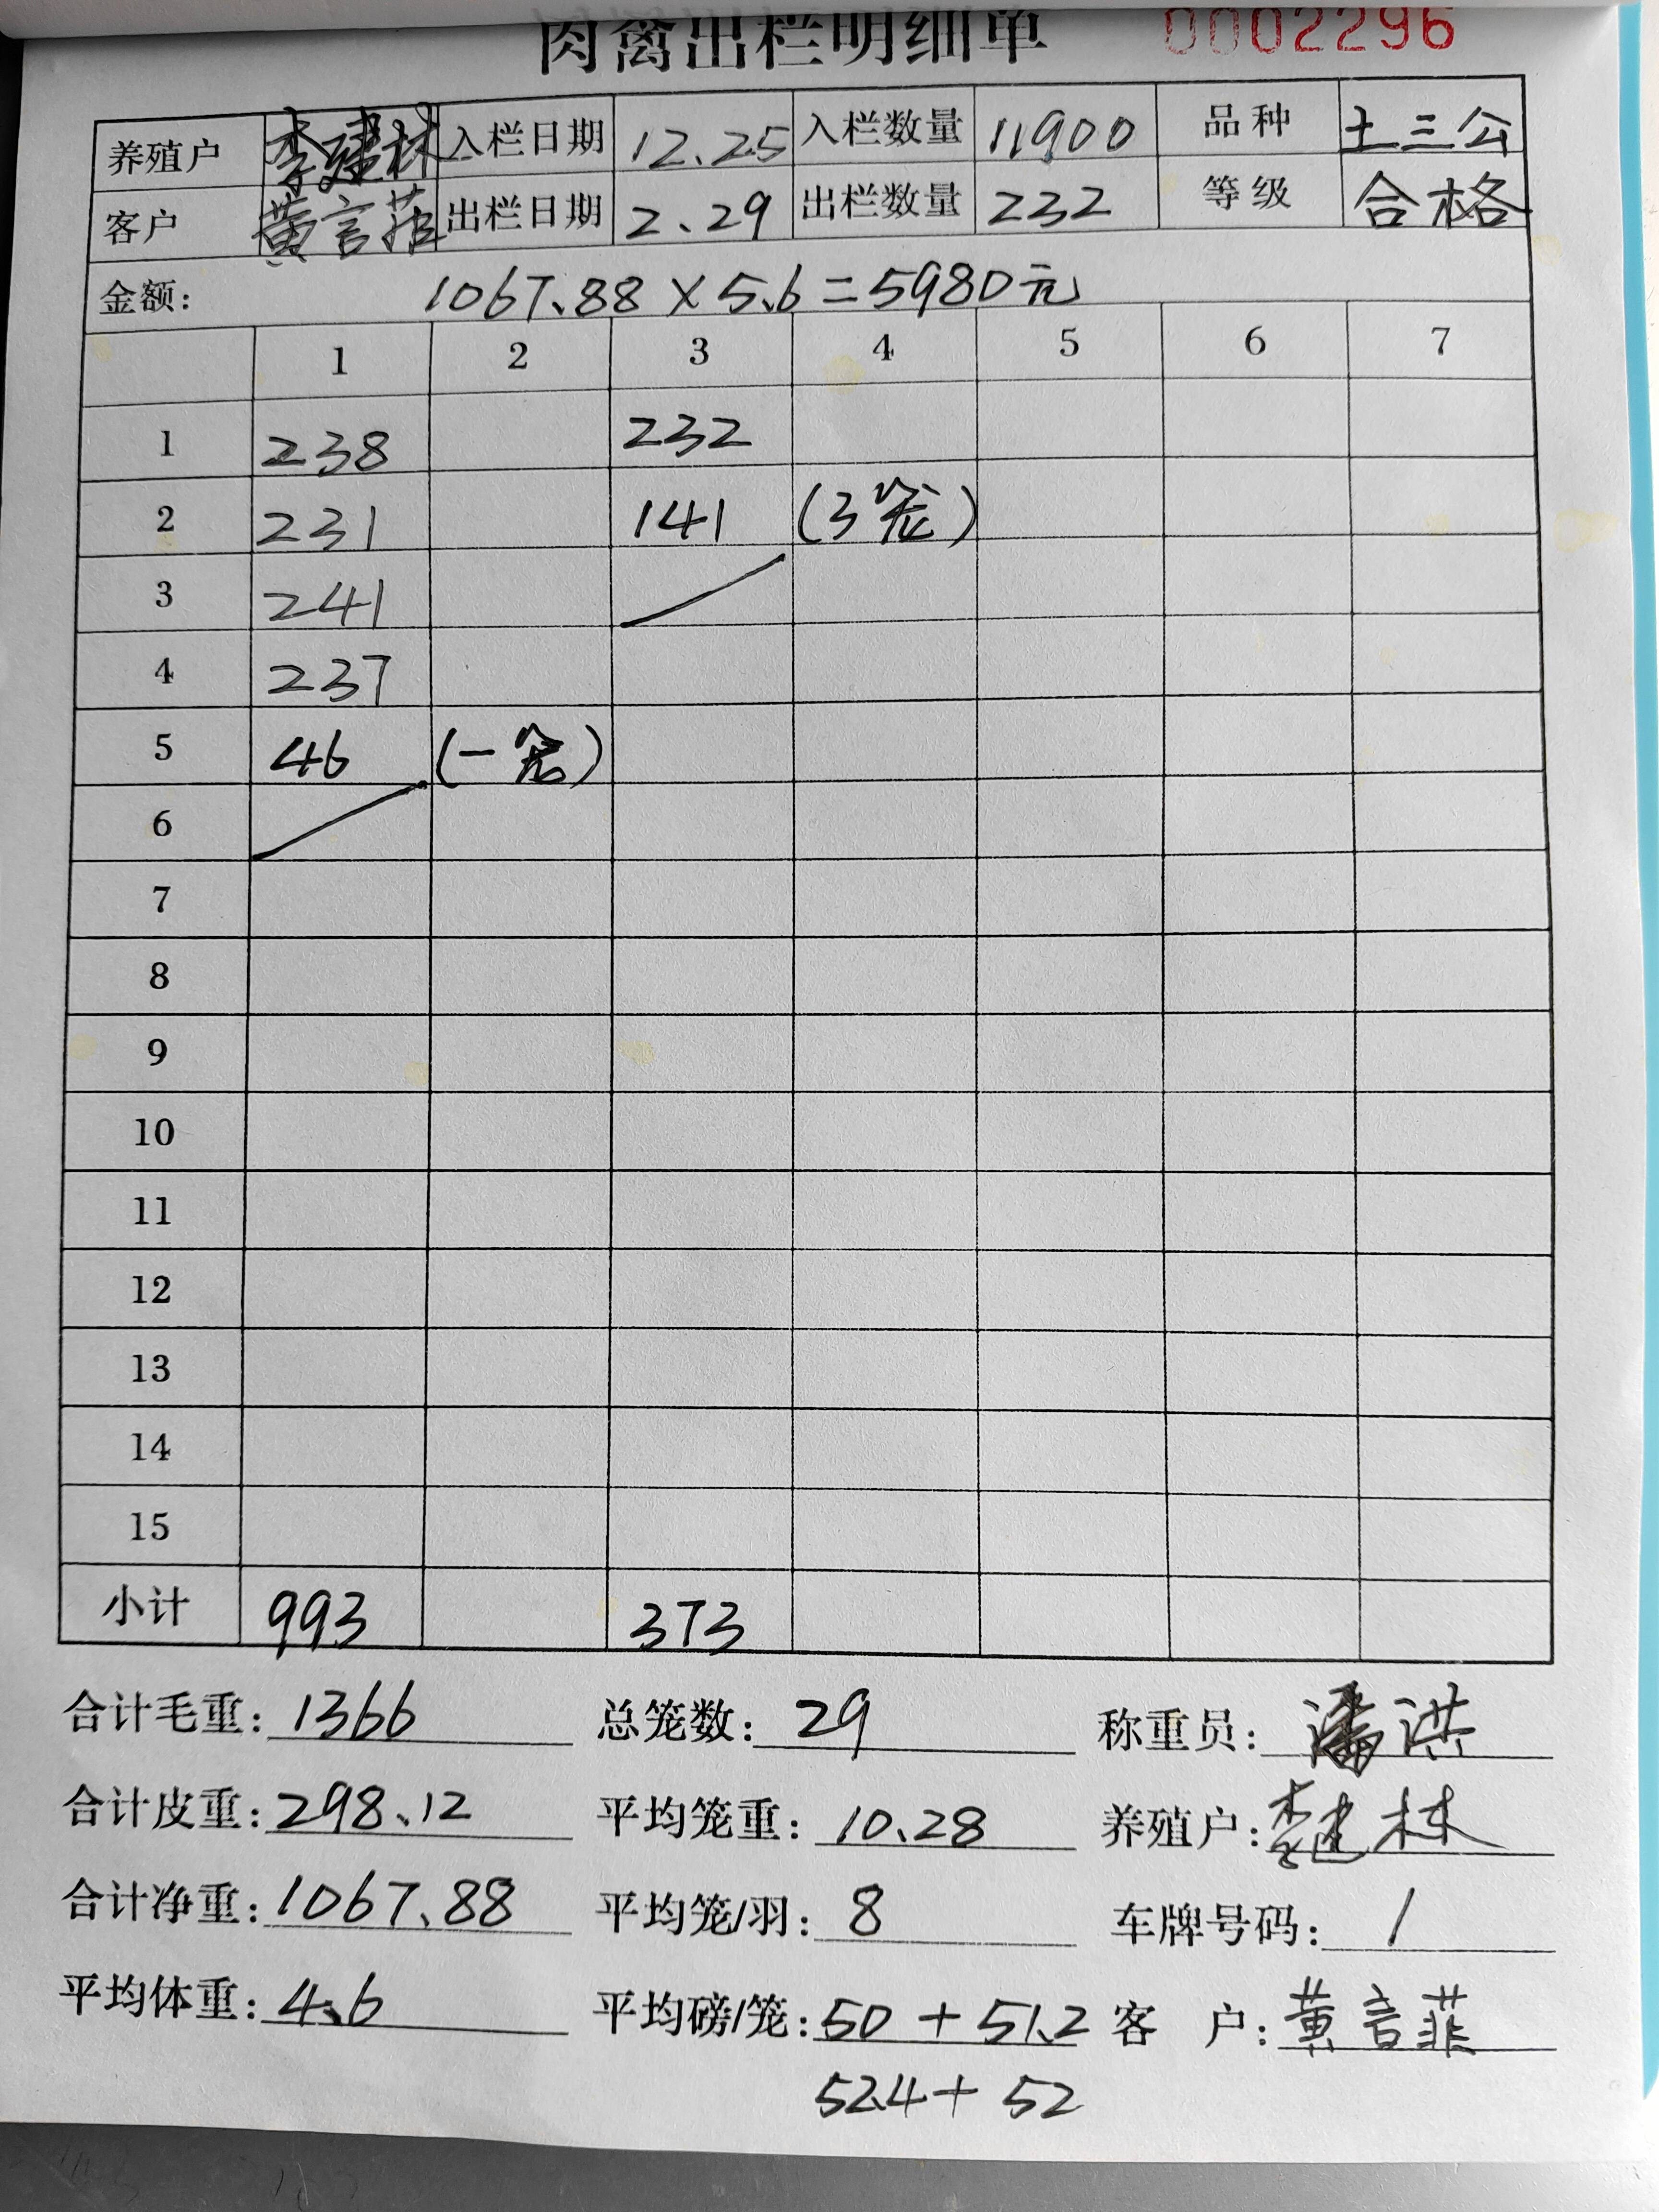 肉禽出栏明细单 0002296
养殖户 李建林 入栏日期 12.25 入栏数量 11900 品种 土三公
客户 黄言菲 出栏日期 2.29 出栏数量 232 等级 合格
金额: 1067.88 × 5.6 = 5980元
1 2 3 4 5 6 7
1 238 232
2 231 141 (3笼)
3 241
4 237
5 46 (一笼)
6
7
8
9
10
11
12
13
14
15
小计 993 373
合计毛重: 1366 总笼数: 29 称重员: 潘洪
合计皮重: 298.12 平均笼重: 10.28 养殖户: 李建林
合计净重: 1067.88 平均笼/羽: 8 车牌号码: /
平均体重: 4.6 平均磅/笼: 50 + 51.2 客 户: 黄言菲
52.4 + 52